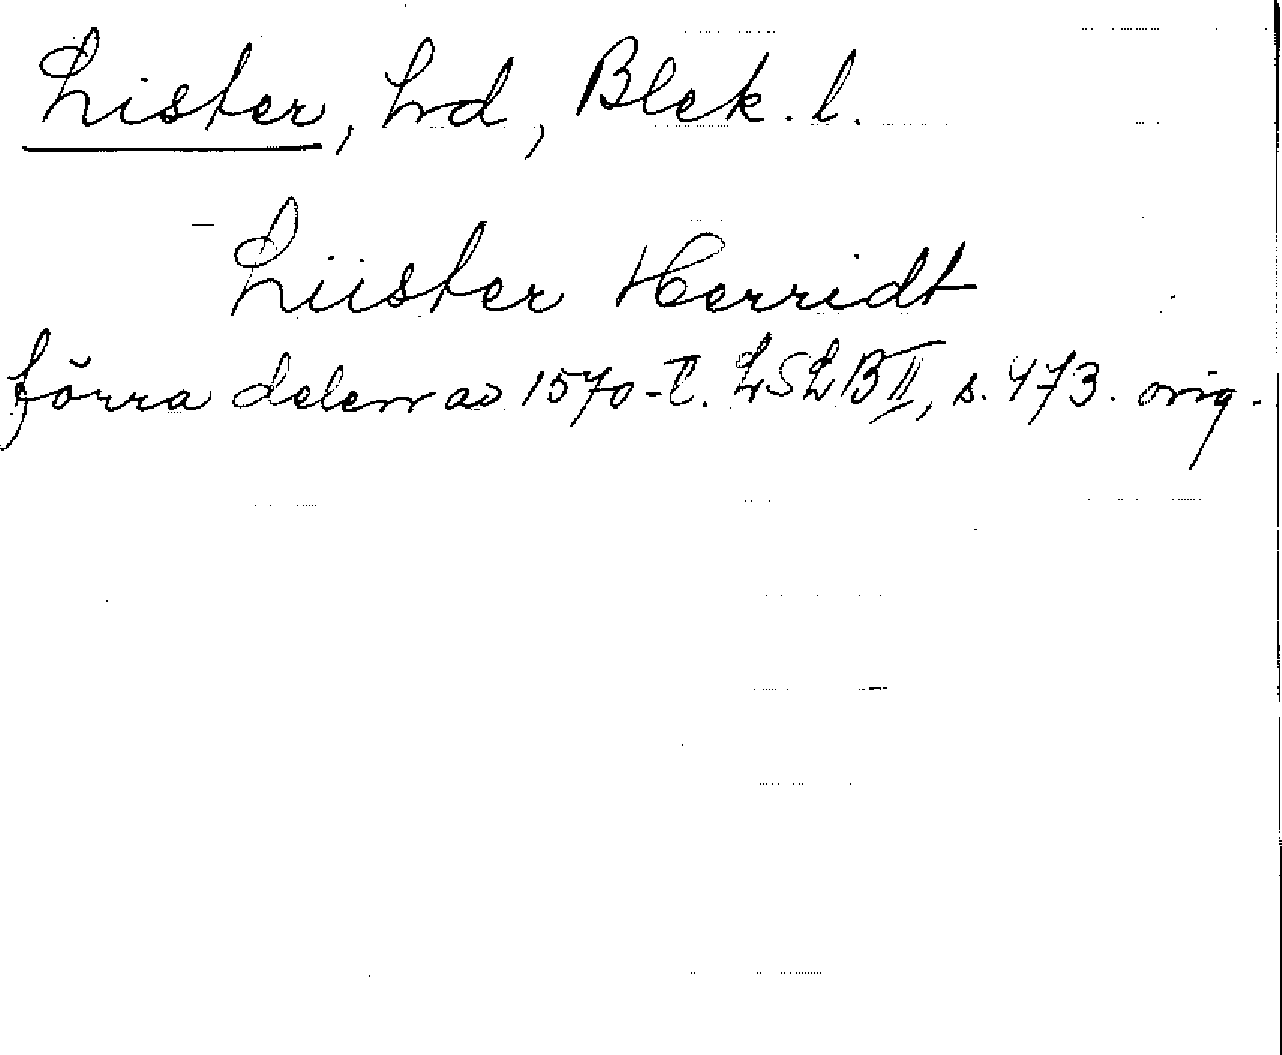 Lister, hd, Blek. l.
— Liister Herridt
förra delen av 1570-t. LSLB II, s. 473. orig.